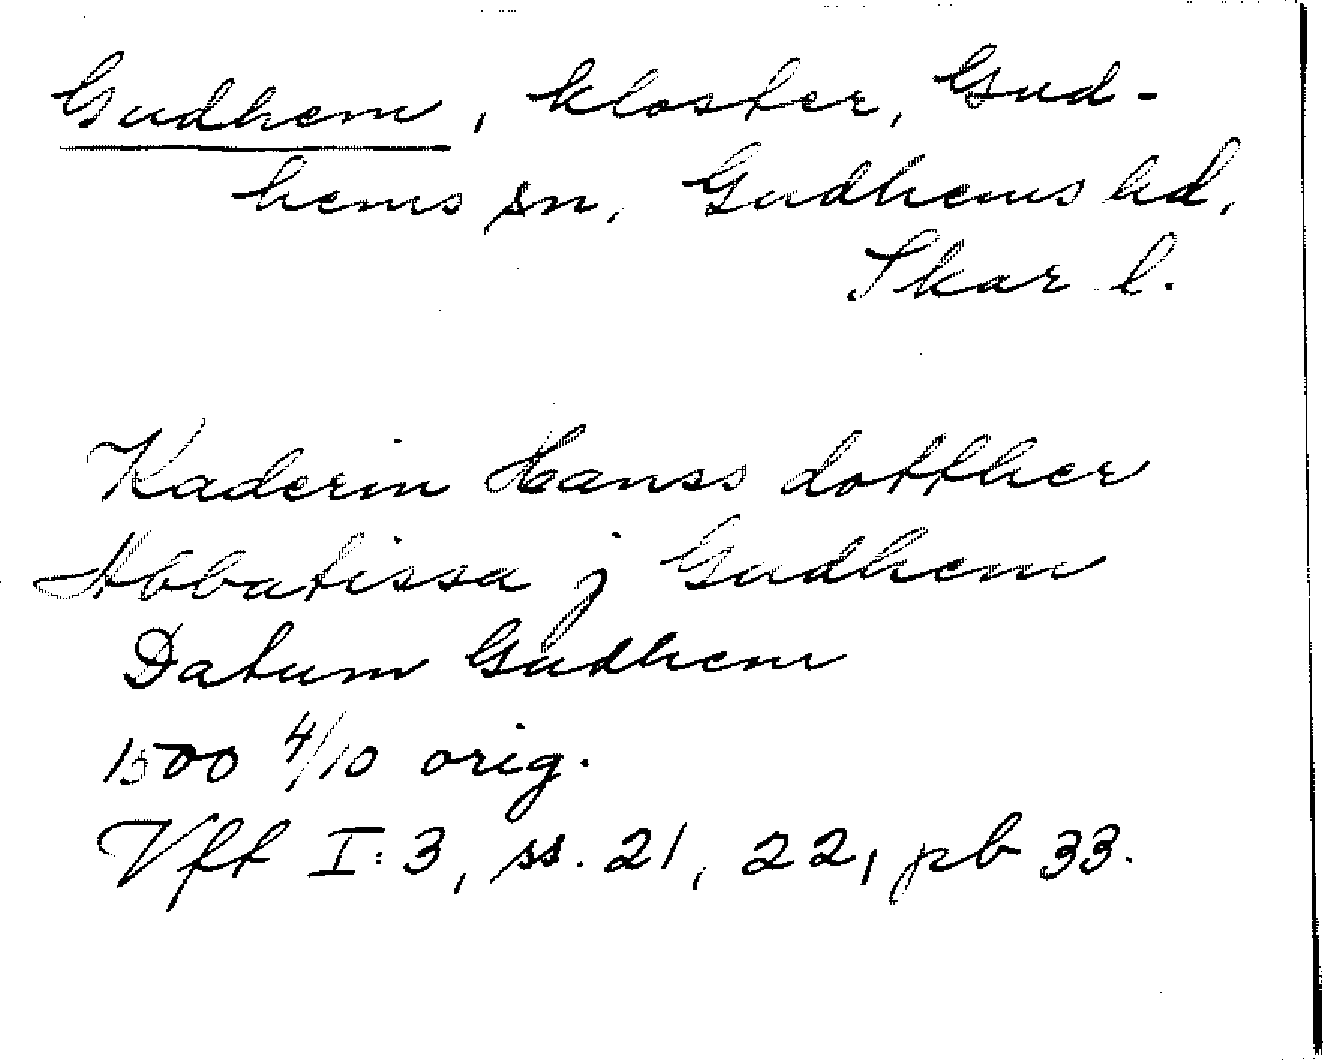 Gudhem, kloster, Gud-
hems sn, Gudhems hd,
Skar. l.
Kaderin Hanss dotther
Abbatissa j Gudhem
Datum Gudhem
1500 4/10 orig.
Vff I:3, ss. 21, 22, pb 33.